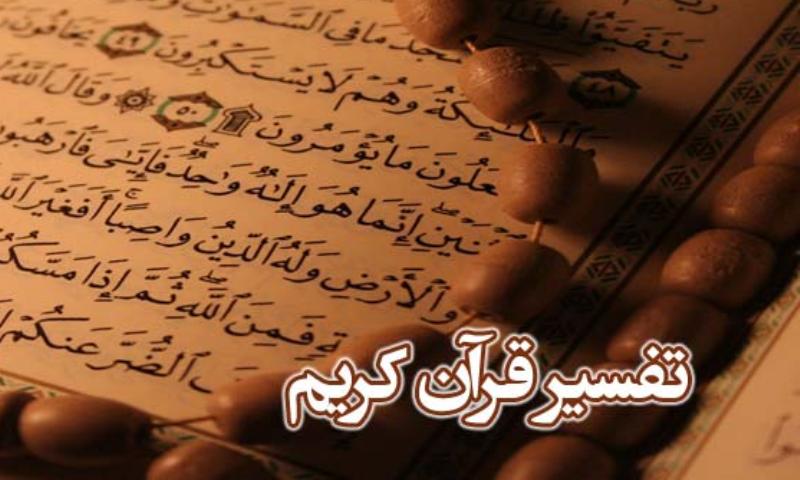 يَتَفَيَّؤُا۟ ظِلَٰلُهُ
٤٨ سْجُدُ مَا فِى ٱلسَّمَٰوَٰتِ
وَٱلْمَلَٰٓئِكَةُ وَهُمْ لَا يَسْتَكْبِرُونَ ٤٩ يَخَافُونَ
عَلُونَ مَا يُؤْمَرُونَ ۩ ٥٠ ۞ وَقَالَ ٱللَّهُ
ثْنَيْنِ ۖ إِنَّمَا هُوَ إِلَٰهٌ وَٰحِدٌ ۖ فَإِيَّٰىَ فَٱرْهَبُو
وَٱلْأَرْضِ وَلَهُ ٱلدِّينُ وَاصِبًا ۚ أَفَغَيْرَ ٱللَّ
ةٍ فَمِنَ ٱللَّهِ ۖ ثُمَّ إِذَا مَسَّكُ
ٱلضُّرَّ عَنكُمْ
تفسیر قرآن کریم